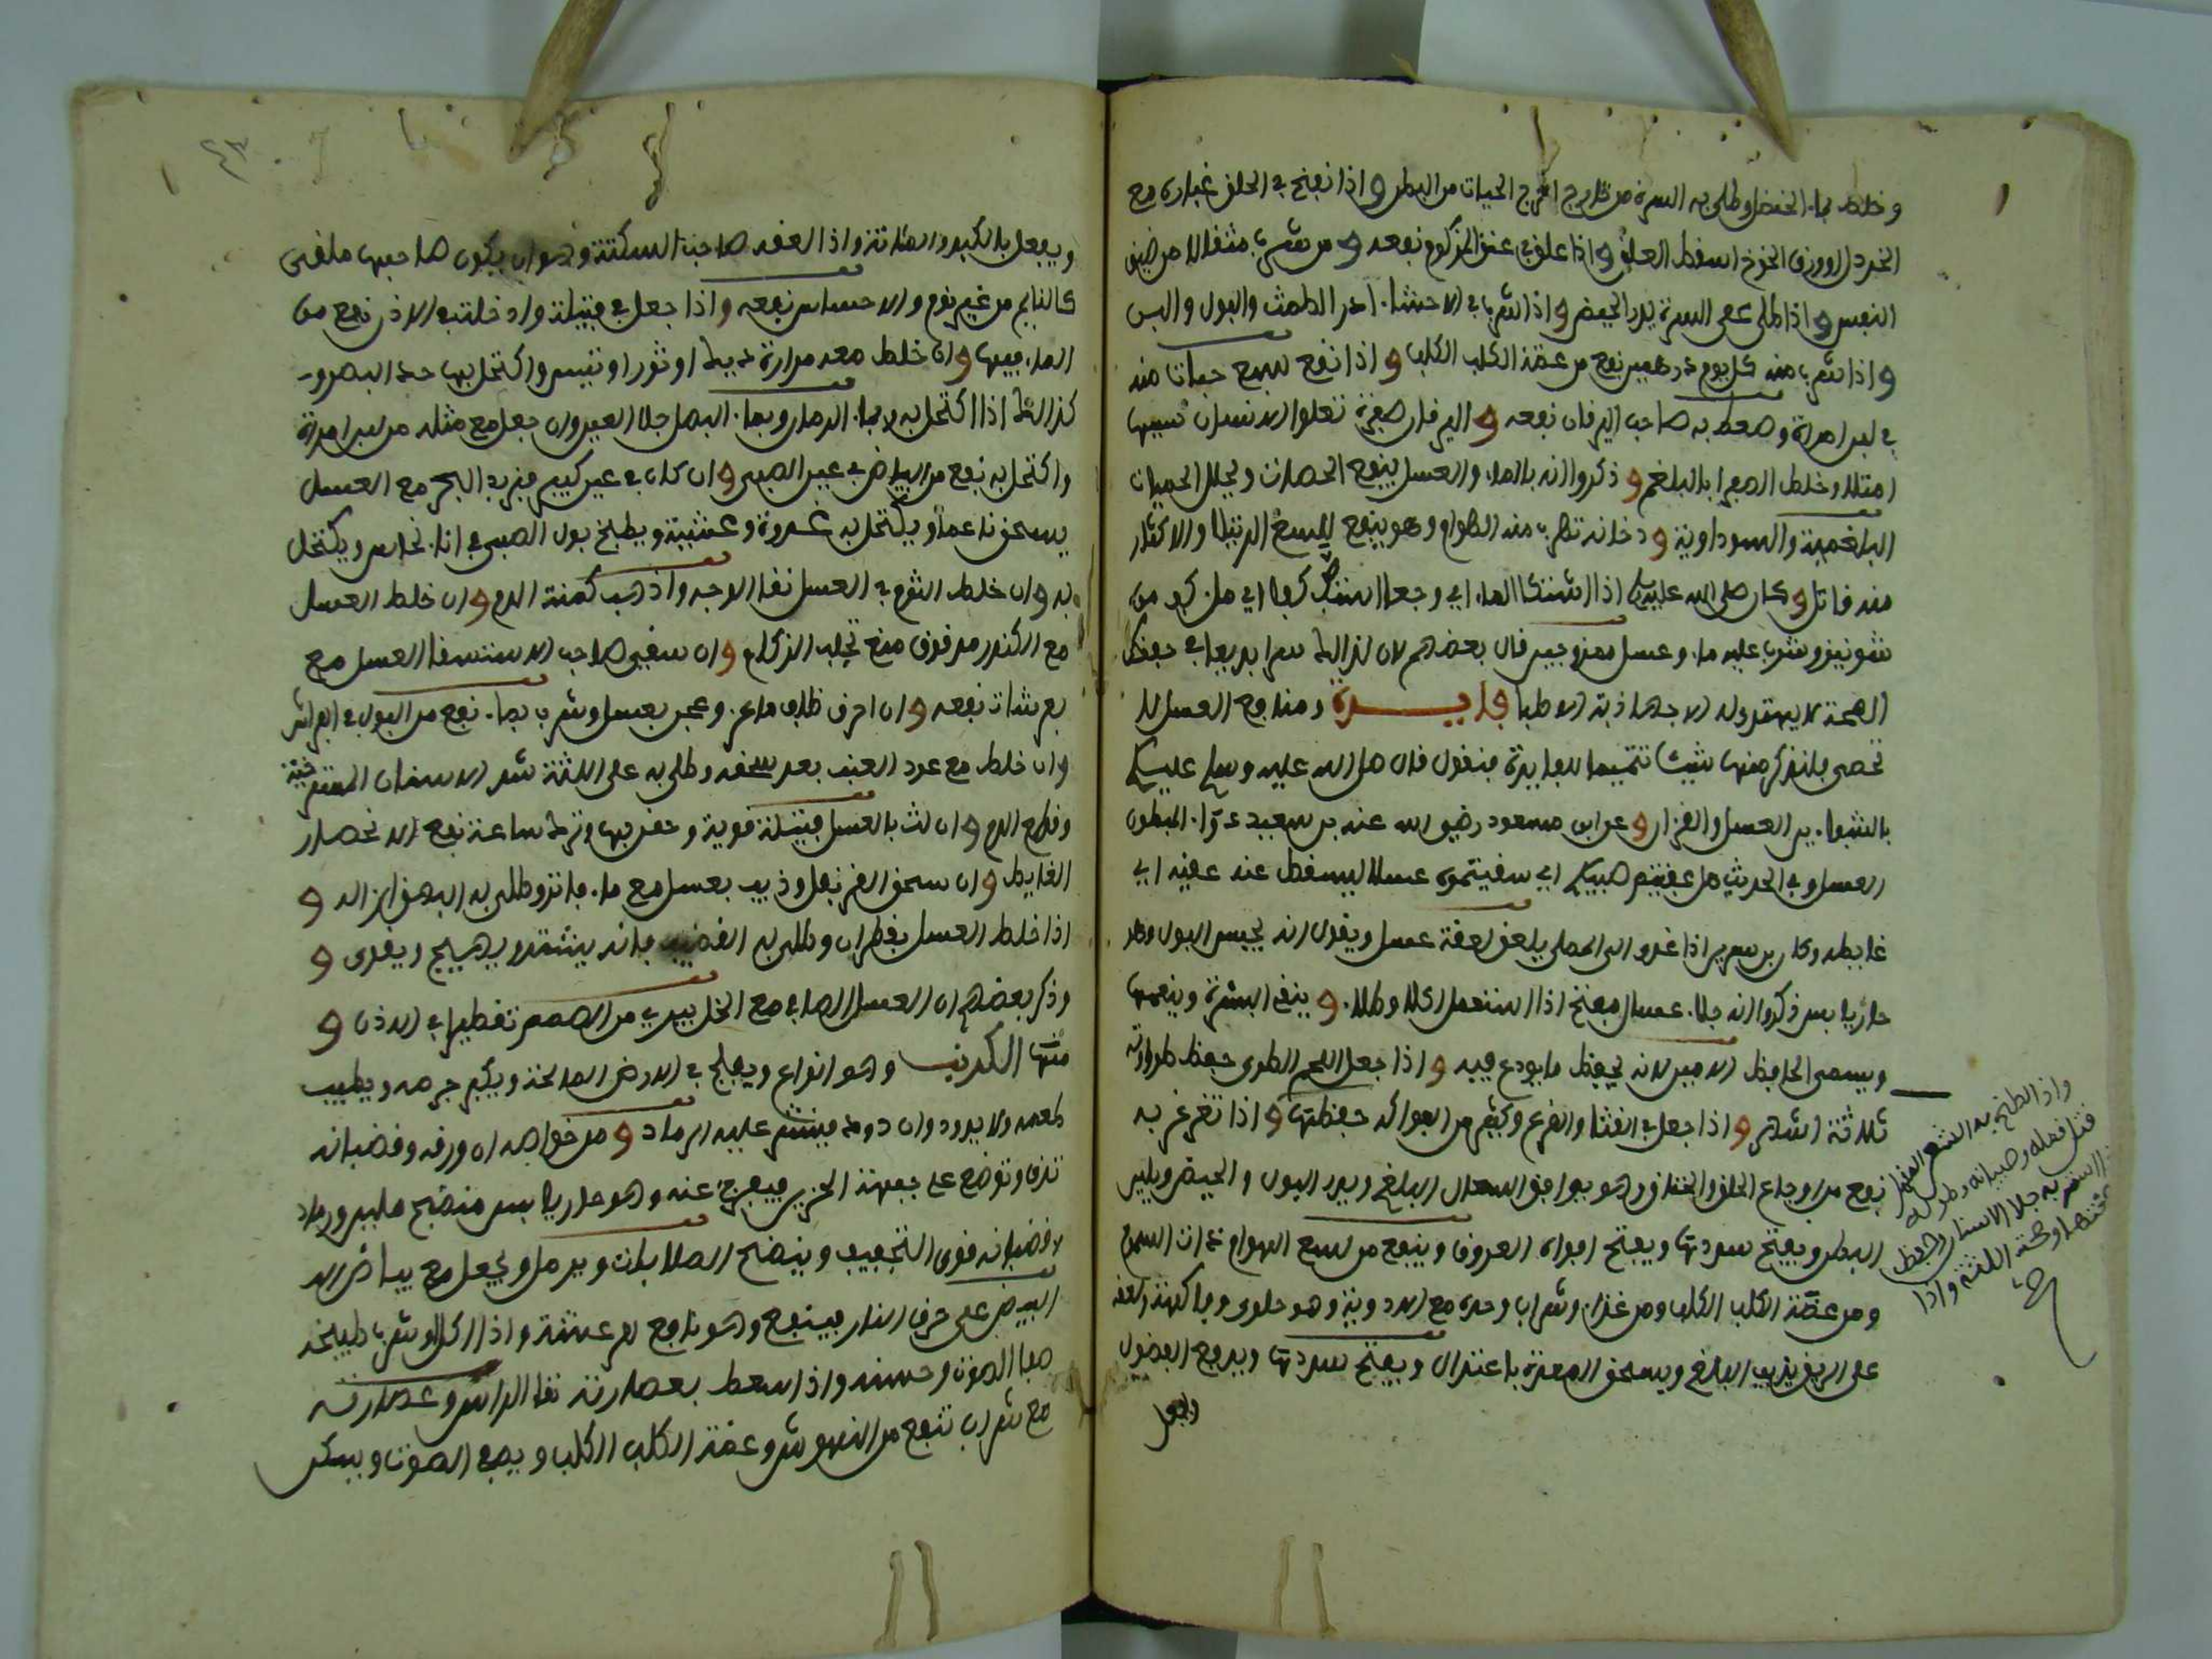 وخلط بماء الحنظل وطلي به السرة من خارج اخرج الحيات من البطن واذا نفخ في الحلق غباره مع
الخردل اوورق الخوخ اسقط العلق واذا علق في عنق المزكوم نفعه ومن شرب مثقالا من ضيق
النفس واذا طلي على السرة يدر الحيض واذا شرب في الاحشاء ادر الطمث والبول واللبن
واذا شرب منه كل يوم درهمين نفع من عضة الكلب الكلب واذا نقع سبع حبات منه
في لبن امراة وسعط به صاحب اليرقان نفعه واليرقان صفرة تعلوا الانسان سببها
امتلاء وخلط الصفرا بالبلغم وذكروا انه بالماء والعسل ينفع الحصات ويحلل الحميات
البلغمية والسوداوية ودخانه تهرب منه الهوام وهو ينفع للسع الرتيلا والاكثار
منه قاتل وكان صلى الله عليه وسلم اذا اشتكا الماء اي وجعا استف كفا اي ملء كف من
شونيز وشرب عليه ماء وعسل ممزوجين قال بعضهم لان لذلك سرا بديعا في حفظ
الصحة لا يهتدي له الا جهابذة الاطبا فايدة ومنافع العسل لا
تحصى فلنذكر منها شيئا تتميما للفايدة فنقول قال صلى الله عليه وسلم عليكم
بالشفاءين العسل والقرءان وعن ابن مسعود رضي الله عنه دواء المبطون
العسل وفي الحديث هل عقيتم صبيكم اي سقيتموه عسلا ليسقط عنه عقيه اي
غايطه وكان اذا غدو الى المصلى يلعق لعقة عسل ويقول انه يحبس البول وهو
حار يابس ذكروا انه جلاء غسال مفتح اذا استعمل اكلا وطلاء وينقي البشرة وينعمها
ويسمى الحافظ الامين لانه يحفظ ما يودع فيه واذا جعل اللحم الطري حفظ طراوته
ثلاثة اشهر واذا جعل في القثا والقرع وكثير من الفواكه حفظها واذا تغرغر به
نفع من اوجاع الحلق والخناق وهو يوافق السعال البلغمي ويدر البول والحيض ويلين
البطن ويفتح سددها ويفتح افواه العروق وينفع من لسع الهوام ذوات السموم
ومن عضة الكلب الكلب ومن غذاء وشراب وحده مع الادوية وهو حلوى وفاكهة ولعقه
على الريق يذيب البلغم ويسخن المعدة باعتدال ويفتح سددها ويدفع الفضول
ويفعل
واذا لطخ به الشعر
قتل قمله وصيبانه وطوله
جلا الاسنان وحفظ
صحتها وصحة اللثة واذا
صح
ويفعل بالكبد والمثانة واذا العقه صاحب السكتة وهو ان يكون صاحبها ملقى
كالنايم من غير نوم ولا احساس نفعه واذا جعل في فتيلة وادخلت في الاذن نفع من
الماء فيها وان خلط معه مرارة ديك او ثور او تيس واكتحل بها حد البصر و
كذالك اذا اكتحل به بماء الرمان وبماء البصل جلا العين وان جعل مع مثله من لبن امراة
واكتحل به نفع من البياض في عين الصبي وان كان في عين كبير فزبد البحر مع العسل
يسحق ناعما ويكتحل به غدوة وعشية ويطبخ بول الصبي في اناء نحاس ويكتحل
به وان خلط الثوم في العسل نقا الوجه واذهب كمنة الدم وان خلط العسل
مع الكندر مدقوق منع تحلب الزكام وان سقي صاحب الاستسقا العسل مع
بعر شات نفعه وان احرق ظلف ماعز وعجن بعسل وشرب بماء نفع من البول في الفراش
وان خلط مع عود العنب بعد سحقه وطلي به على اللثة شد الاسنان المسترخية
وقطع الدم وان لث بالعسل فتيلة قوية وحقن بها وترك ساعة نفع انحصار
الغايط وان سحق القرنفل وذيب بعسل مع ماء فاتر وطلي به البهق ازاله و
اذا خلط العسل بقطران وطلي به القضيب فانه يشتد ويهيج ويقوى و
وذكر بعضهم ان العسل الصافي مع الخل يبري من الصمم تقطيرا في الاذن و
منها الكرنب وهو انواع ويفلح في الارض المالحة ويكبر جرمه ويطيب
طعمه ولا يدود وان دود فينثر عليه الرماد ومن خواصه ان ورقه وقضبانه
تدق وتوضع على جبهة الحزين فيفرج عنه وهو حار يابس منضج ملين ورماد
قضبانه قوي التجفيف وينضج الصلابات ويدمل ويجعل مع بياض
البيض على حرق النار فينفع وهو نافع للرعشة واذا اكل او شرب طبيخه
صفا الصوت وحسنه واذا سعط بعصارته نقا الراس وعصارته
مع شراب تنفع من النهوش وعضة الكلب الكلب ويصفي الصوت ويسكن